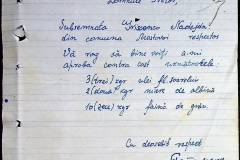 Domnule Prim,
Subsemnata
din comuna Mostovoi respectos
Vă rog să bine voiți a-mi
aproba contra cost următoarele
3 (trei) kgr ulei fl. soarelui
2 (două) kgr miere de albină
10 (zece) kgr făină de grâu.
Cu deosebit respect